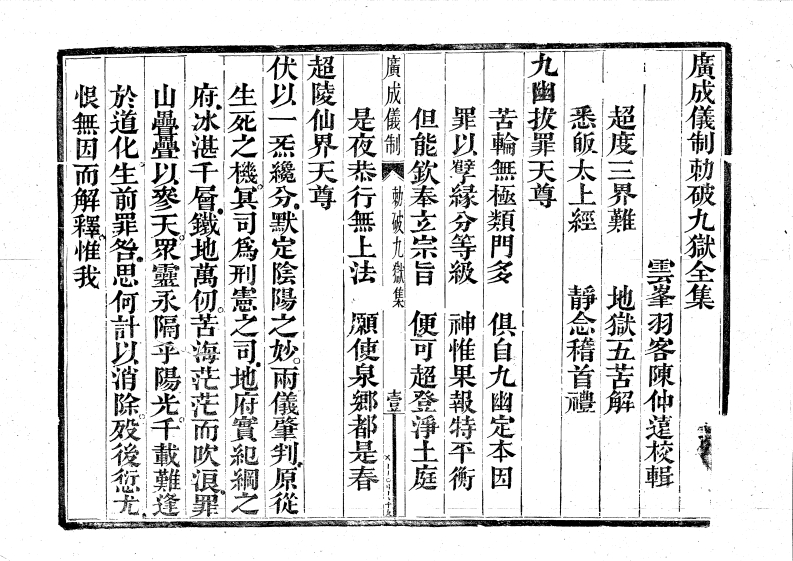 廣成儀制勅破九獄全集
雲峯羽客陳仲遠校輯
超度三界難　地獄五苦解
悉皈太上經　靜念稽首禮
九幽拔罪天尊
苦輪無極類門多　俱自九幽定本因
罪以孽緣分等級　神惟果報特平衡
但能欽奉立宗旨　便可超登淨土庭
廣成儀制　勅破九獄集　壹
是夜恭行無上法　願使泉鄉都是春
超陵仙界天尊
伏以一炁纔分默定陰陽之妙兩儀肇判原從
生死之機冥司爲刑憲之司地府實紀綱之
府冰湛千層鐵地萬仞苦海茫茫而吹浪罪
山疊疊以參天眾靈永隔乎陽光千載難逢
於道化生前罪咎思何計以消除歿後愆尤
恨無因而解釋惟我